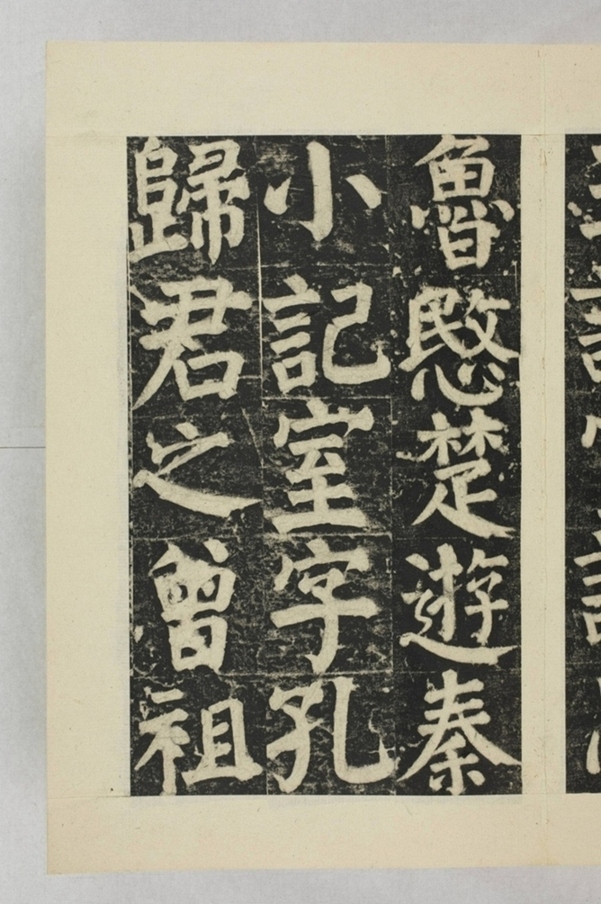 魯愍楚遊秦
小記室字孔
歸君之曾祖